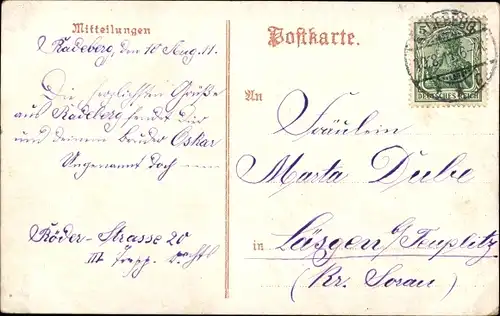 Mitteilungen
Radeberg, den 10 Aug. 11.
Die herzlichsten Grüße
aus Radeberg sendet Dir
und deinem bruder Oskar
Ungenannt doch
Röder-Strasse 20
III Trepp.
Postkarte.
RADEBERG
DEUTSCHES REICH
An
Fräulein
Marta Dube
in Läsgen b/Teuplitz
(Kr. Sorau)